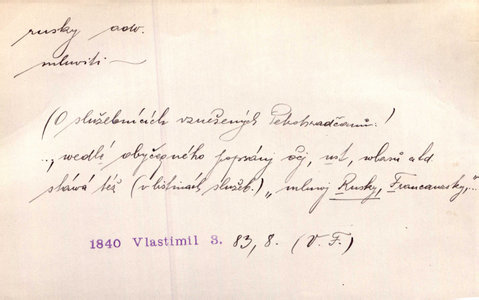 rusky adv.
mluviti –
(O služebnících vznešených Petohradčanů:)
„, wedlé obyčegného popsánj očj, ust, wlasů atd
stáwá též (v listinách služeb.) „mluwj Rusky, Francauzsky,"...
1840 Vlastimil 3. 83, 8. (V. F.)